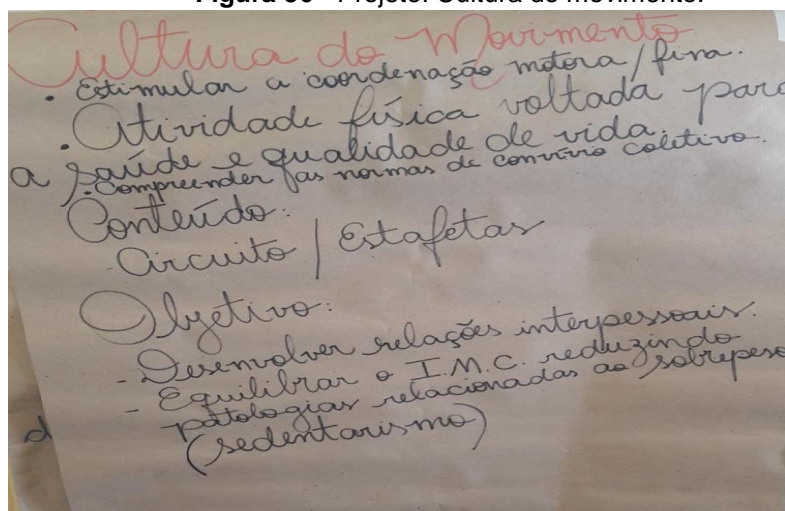 Projeto: Cultura do movimento.
Cultura do Movimento
• Estimular a coordenação motora/fina.
• Atividade física voltada para
a saúde e qualidade de vida.
• Compreender as normas de convívio coletivo.
Conteúdo:
- Circuito / Estafetas
Objetivo:
- Desenvolver relações interpessoais.
- Equilibrar o I.M.C. reduzindo
patologias relacionadas ao sobrepeso
(sedentarismo)
d